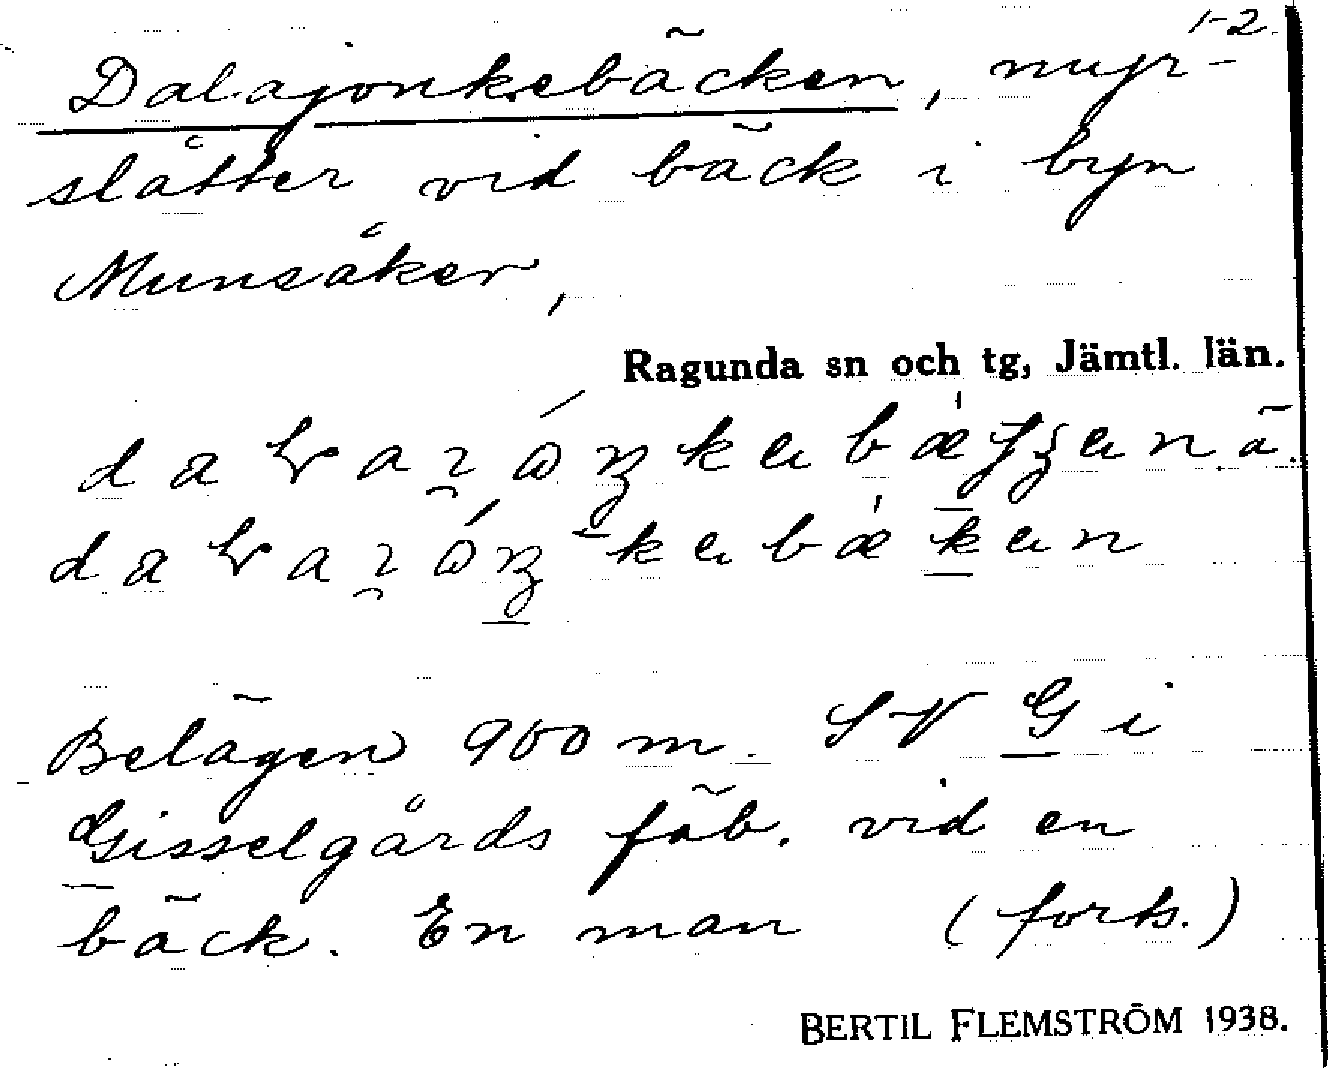 1-2.
Dalajonkebäcken, myr-
slåtter vid bäck i byn
Munsåker,
Ragunda sn och tg, Jämtl. län.
Belägen 900 m. SV G i
Gisselgårds fäb. vid en
bäck. En man (forts.)
BERTIL FLEMSTRÖM 1938.